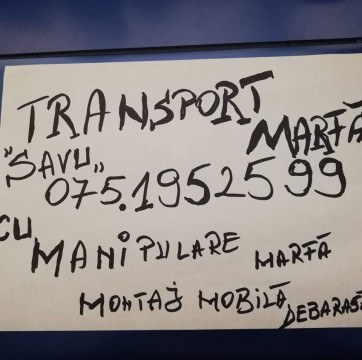 TRANSPORT
MARFĂ
"SAVU"
075.1952599
CU
MANIPULARE MARFĂ
MONTAJ MOBILĂ